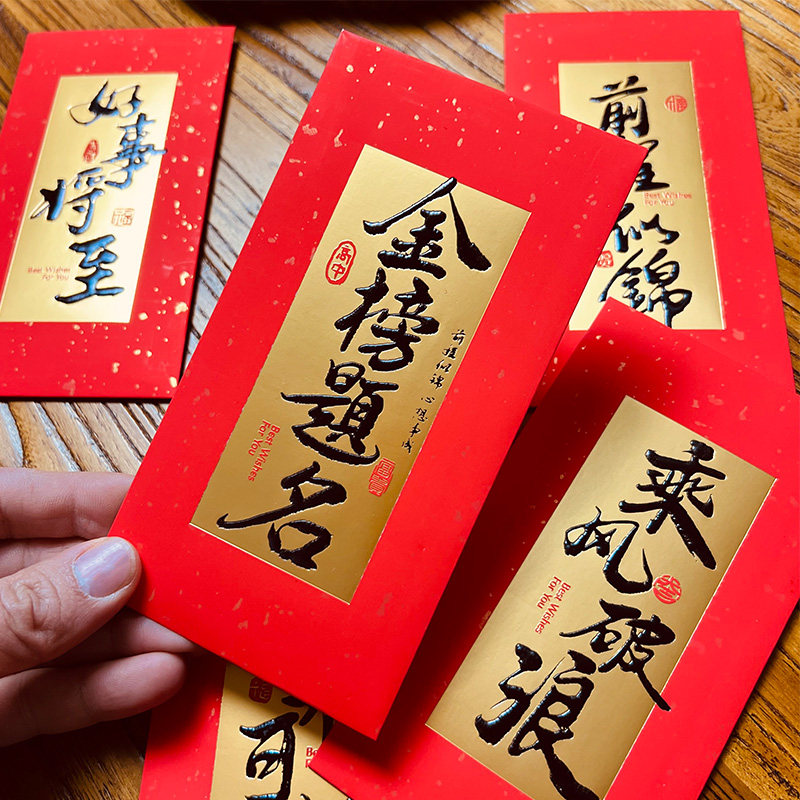 好事将至
Best Wishes
For You
金榜题名
高中
前程似锦 心想事成
Best Wishes
For You
前程似锦
Best Wishes
For You
乘风破浪
Best Wishes
For You
可